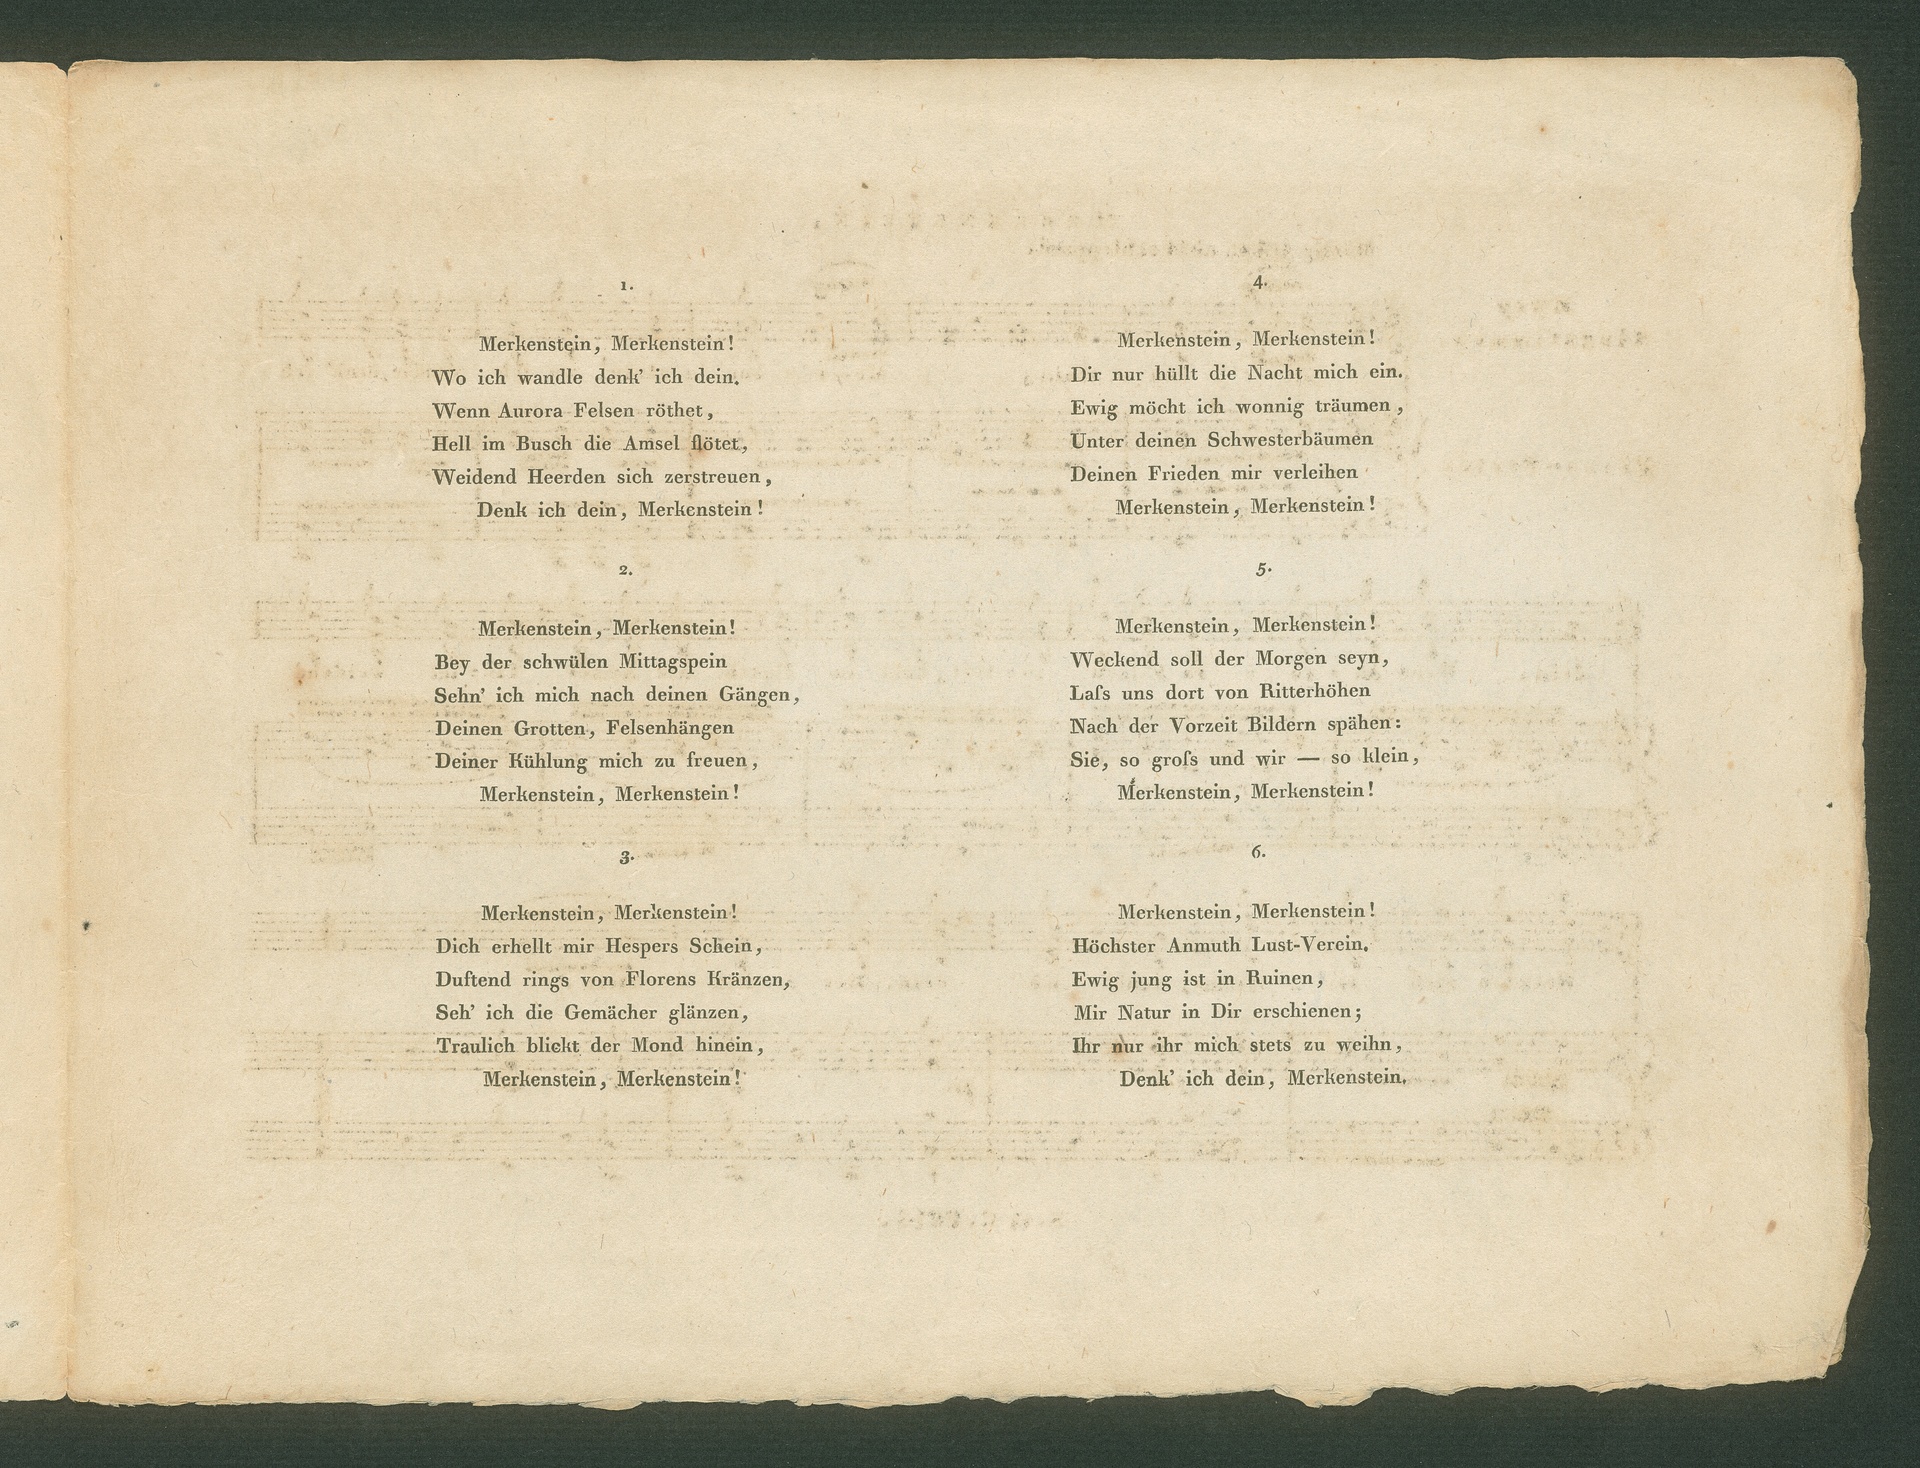 1.
Merkenstein, Merkenstein!
Wo ich wandle denk' ich dein.
Wenn Aurora Felsen röthet,
Hell im Busch die Amsel flötet,
Weidend Heerden sich zerstreuen,
Denk ich dein, Merkenstein!
2.
Merkenstein, Merkenstein!
Bey der schwülen Mittagspein
Sehn' ich mich nach deinen Gängen,
Deinen Grotten, Felsenhängen
Deiner Kühlung mich zu freuen,
Merkenstein, Merkenstein!
3.
Merkenstein, Merkenstein!
Dich erhellt mir Hespers Schein,
Duftend rings von Florens Kränzen,
Seh' ich die Gemächer glänzen,
Traulich blickt der Mond hinein,
Merkenstein, Merkenstein!
4.
Merkenstein, Merkenstein!
Dir nur hüllt die Nacht mich ein.
Ewig möcht ich wonnig träumen,
Unter deinen Schwesterbäumen
Deinen Frieden mir verleihen
Merkenstein, Merkenstein!
5.
Merkenstein, Merkenstein!
Weckend soll der Morgen seyn,
Laſs uns dort von Ritterhöhen
Nach der Vorzeit Bildern spähen:
Sie, so groſs und wir — so klein,
Merkenstein, Merkenstein!
6.
Merkenstein, Merkenstein!
Höchster Anmuth Lust-Verein.
Ewig jung ist in Ruinen,
Mir Natur in Dir erschienen;
Ihr nur ihr mich stets zu weihn,
Denk' ich dein, Merkenstein.